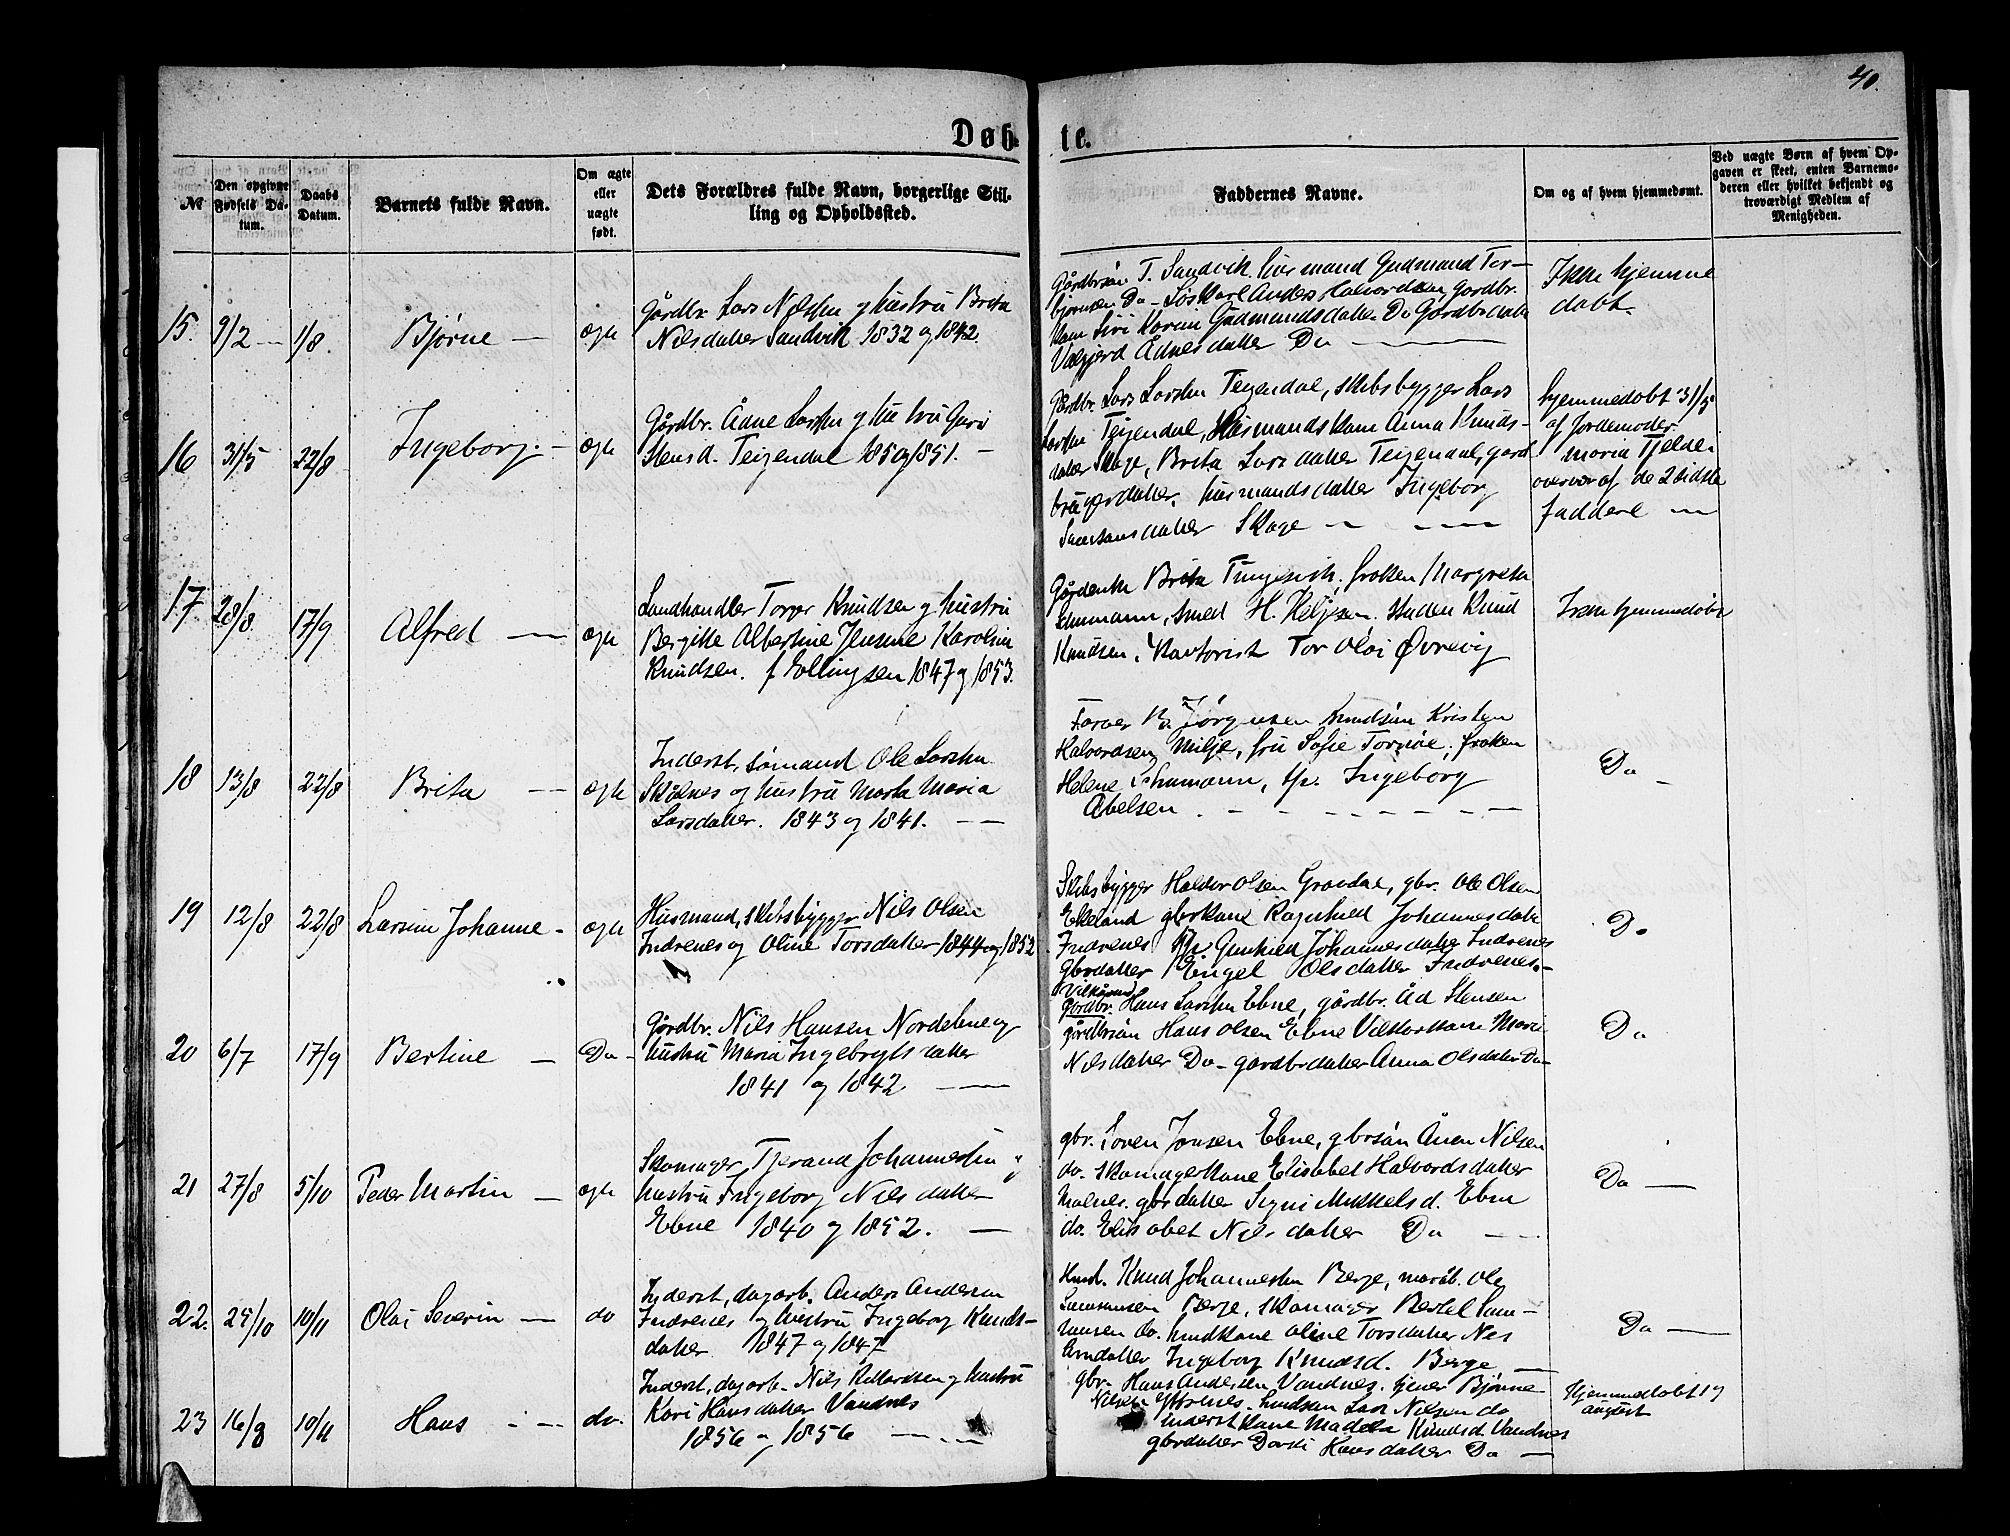 40.
Døb-
te.
№
Den opgivne Fødsels Datum.
Daabs Datum.
Barnets fulde Navn.
Om ægte eller uægte født.
Dets Forældres fulde Navn, borgerlige Stilling og Opholdssted.
Faddernes Navne.
Om og af hvem hjemmedømt.
Ved uægte Børn af hvem Opgaven er skeet, enten Barnemoderen eller hvilket bekjendt og troværdigt Medlem af Menigheden.
15. 9/2 — 1/8. Bjørne — ægte
Gårdbr. Lars Nilssen og hustru Brita
Nilsdatter Sandvik 1832 og 1842.
Gårdbrsøn T. Sandvik. husmand Gudmand Tor-
bjørnsen Do — Anders Halvordsen gårdbr.
kone Siri Karine Gudmundsdatter Do Gårdbrdatter
Valgjerd Ådnesdatter Do —
Ikke hjemme
døbt.
16 31/5 22/8 Ingeborg. — ægte
Gårdbr. Ådne Larssen og hustru Guri
Stensd. Teigendal 1850 1851. —
Gårdbr. Lars Larssen Teigendal, skibsbygger Lars
Larssen Teigendal, Husmandskone Anna Knuds-
datter Skage, Brita Larsdatter Teigendal, gård
brugerdatter. husmandsdatter Ingeborg
Samsonsdatter Skage — — —
hjemmedøbt 31/5
af Jordemoder
Maria Tjelde.
overvær af de 2 sidste
faddere —
17 28/8 17/9 Alfred — ægte
Landhandler Torger Knudsen og hustru
Bergitte Albertine Jensine Karoline
Knudsen. f. Ellingsen 1847 og 1853.
Gårdenke Brita Tungesvik. frøken Margreta
Schumann, smed H. Heljesen. student Knud
Knudsen, Kontorist Tor Olai Øvrevig
Ikke hjemmedøbt
18 13/8 22/8 Brita — ægte
Inderst, sømand Ole Larssen
Skålnes og hustru Marta Maria
Larsdatter. 1843 og 1841. —
Farver B. Jørgensen Kristen
Halvordsen Milje, fru Sofie Tornøe, frøken
Helene Schumann, tp. Ingeborg
Abelsen. — — — — —
Do —
19 12/8 22/8 Larsine Johanne — ægte
Husmand, skibsbygger Nils Olsen
Indrenes og Oline Torsdatter 1844 og 1852
Skibsbygger Haldor Olsen Grovdal, gbr. Ole Olsen
Ekeland gbrkone Ragnhild Johannesdatter
Indrenes tp. Gunhild Johannesdatter Indrenes
Gbrdatter Engel Olsdatter Indrenes. —
Do
20 6/7 17/9 Bertine — Do —
Gårdbr. Nils Hansen Nordebne og
hustru Maria Ingebrigtsdatter
1841 og 1842 —
Vilkårsmd
Gårdbr. Hans Larssen Ebne, gårdbr. Åd Stensen
gårdbrsøn Hans Olsen Ebne Vilkårkone Maria
Nilsdatter Do — gårdbrdatter Anna Olsdatter Do —
Do
21 27/8 5/10 Peder Martin — ægte
Skomager Tjerand Johannessen og
hustru Ingeborg Nilsdatter
Ebne 1840 og 1852. —
gbr. Soren Jonsen Ebne, gbrsøn Ånen Nilsen
do. Skomagerkone Elisabet Halvordsdatter
Molnes. gbrdatter Signi Mikkelsd. Ebne
do. Elisabet Nilsdatter Do —
Do —
22. 24/10 10/11 Olai Severin — do
Inderst, dagarb. Anders Andersen
Indrenes og hustru Ingeborg Knuds-
datter 1847 og 1847
Husm. Knud Johannessen Berge, matr. Ole
Samsonsen Berge, skomager Bertel Sam-
sonsen do. husmkone Oline Torsdatter Nes
Ingeborg Knudsd. Berge —
Do —
23 16/8 10/11 Hans — do.
Inderst, dagarb. Nils og hustru
Kari Hansdatter Vandnes
1856 og 1856 —
gbr. Hans Andersen Vandnes. tjener Bjørne
Nilsen Ytrenes. Lars Nilsen do
Inderstkone Madela Knudsd. Vandnes
gbrdatter Dorti Hansdatter Do —
Hjemmedøbt 17
august